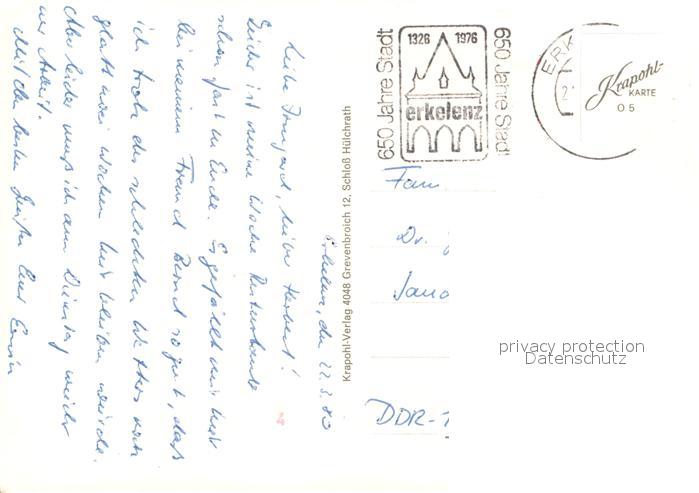 Erkelenz, den 22.3.80
Liebe Irmgard, lieber Herbert!
Leider ist meine Woche
schon fast zu Ende. Es gefällt mir hier
bei meinem Freund Bernd so gut, daß
ich trotz des schlechten Wetters noch
glatt zwei Wochen hier bleiben würde.
Aber leider muß ich am Dienstag wieder
zur Arbeit.
Mit den besten Grüßen Euer Erwin
Krapohl-Verlag 4048 Grevenbroich 12, Schloß Hülchrath
650 Jahre Stadt
1326 1976
erkelenz
650 Jahre Stadt
ERK
2
Krapohl-
KARTE
O 5
Fam.
Dr.
DDR-
privacy protection
Datenschutz